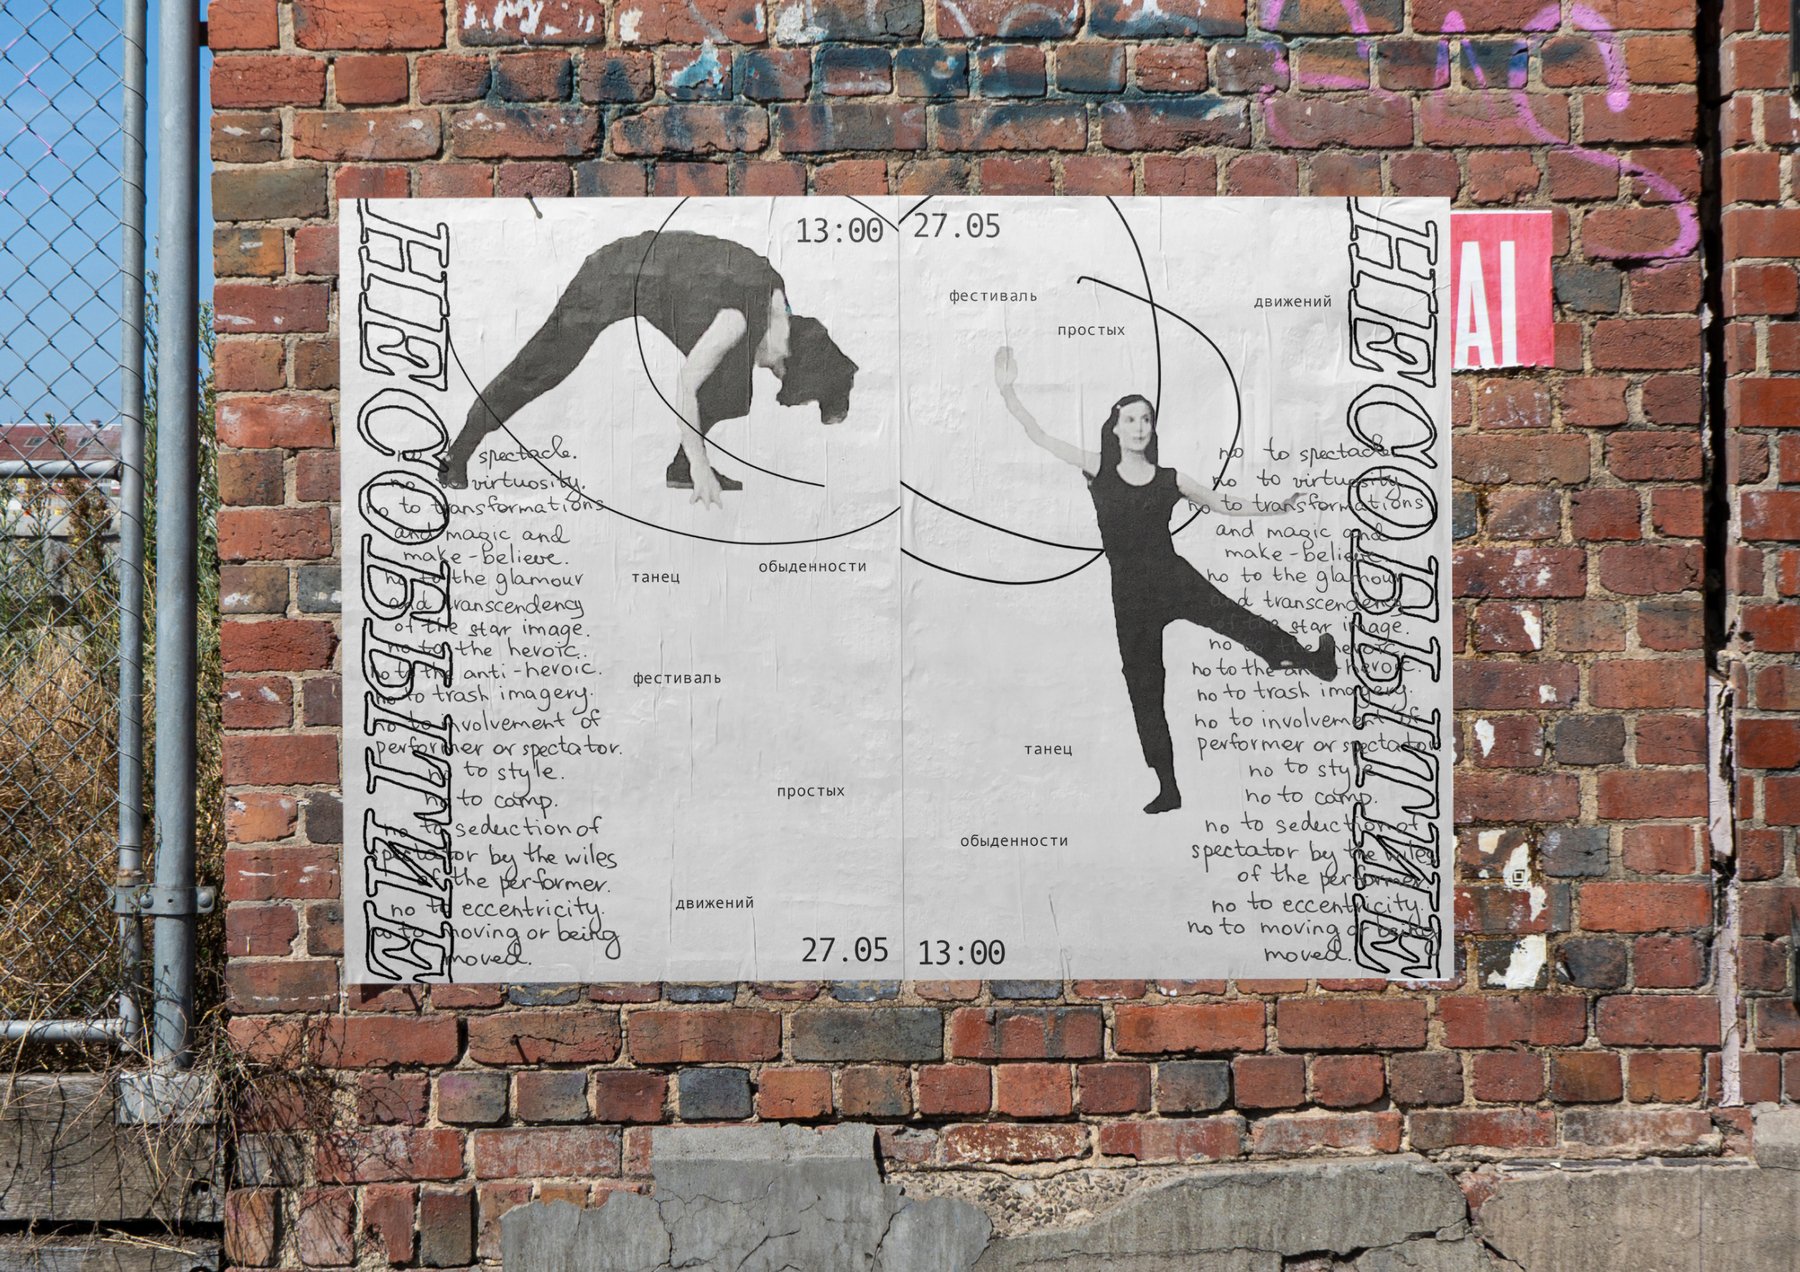 НЕСОБЫТИЕ
13:00
no to spectacle.
no to virtuosity.
no to transformations
and magic and
make-believe.
no to the glamour
and transcendency
of the star image.
no to the heroic.
no to the anti-heroic.
no to trash imagery.
no to involvement of
performer or spectator.
no to style.
no to camp.
no to seduction of
spectator by the wiles
of the performer.
no to eccentricity.
no to moving or being
moved.
танец
обыденности
фестиваль
простых
движений
27.05
27.05
фестиваль
простых
движений
танец
обыденности
13:00
no to spectacle.
no to virtuosity.
no to transformations
and magic and
make-believe.
no to the glamour
and transcendency
of the star image.
no to the heroic.
no to the anti-heroic.
no to trash imagery.
no to involvement of
performer or spectator
no to style
no to camp.
no to seduction of
spectator by the wiles
of the performer
no to eccentricity.
no to moving or being
moved.
НЕСОБЫТИЕ
AI